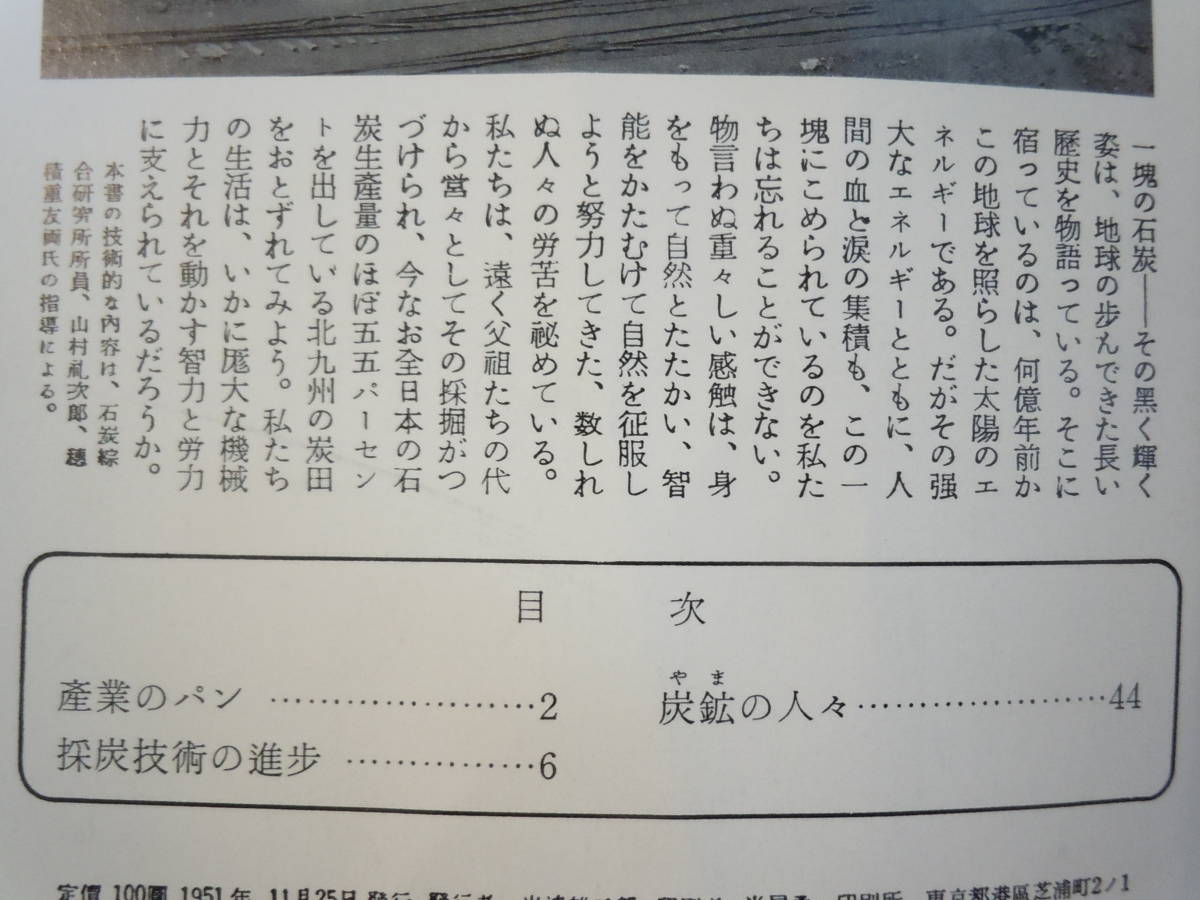 一塊の石炭――その黑く輝く
姿は、地球の歩んできた長い
歷史を物語っている。そこに
宿っているのは、何億年前か
この地球を照らした太陽のエ
ネルギーである。だがその强
大なエネルギーとともに、人
間の血と淚の集積も、この一
塊にこめられているのを私た
ちは忘れることができない。
物言わぬ重々しい感触は、身
をもって自然とたたかい、智
能をかたむけて自然を征服し
ようと努力してきた、数しれ
ぬ人々の労苦を祕めている。
私たちは、遠く父祖たちの代
から営々としてその採掘がつ
づけられ、今なお全日本の石
炭生產量のほぼ五五パーセン
トを出している北九州の炭田
をおとずれてみよう。私たち
の生活は、いかに厖大な機械
力とそれを動かす智力と労力
に支えられているだろうか。
本書の技術的な內容は、石炭綜
合研究所所員、山村礼次郎、穂
積重友両氏の指導による。
目 次
產業のパン ……………………2
採炭技術の進步 ………………6
やま
炭鉱の人々……………………44
定價 100圓 1951年 11月25日 発行 発行者
印刷所 東京都港區芝浦町2ノ1